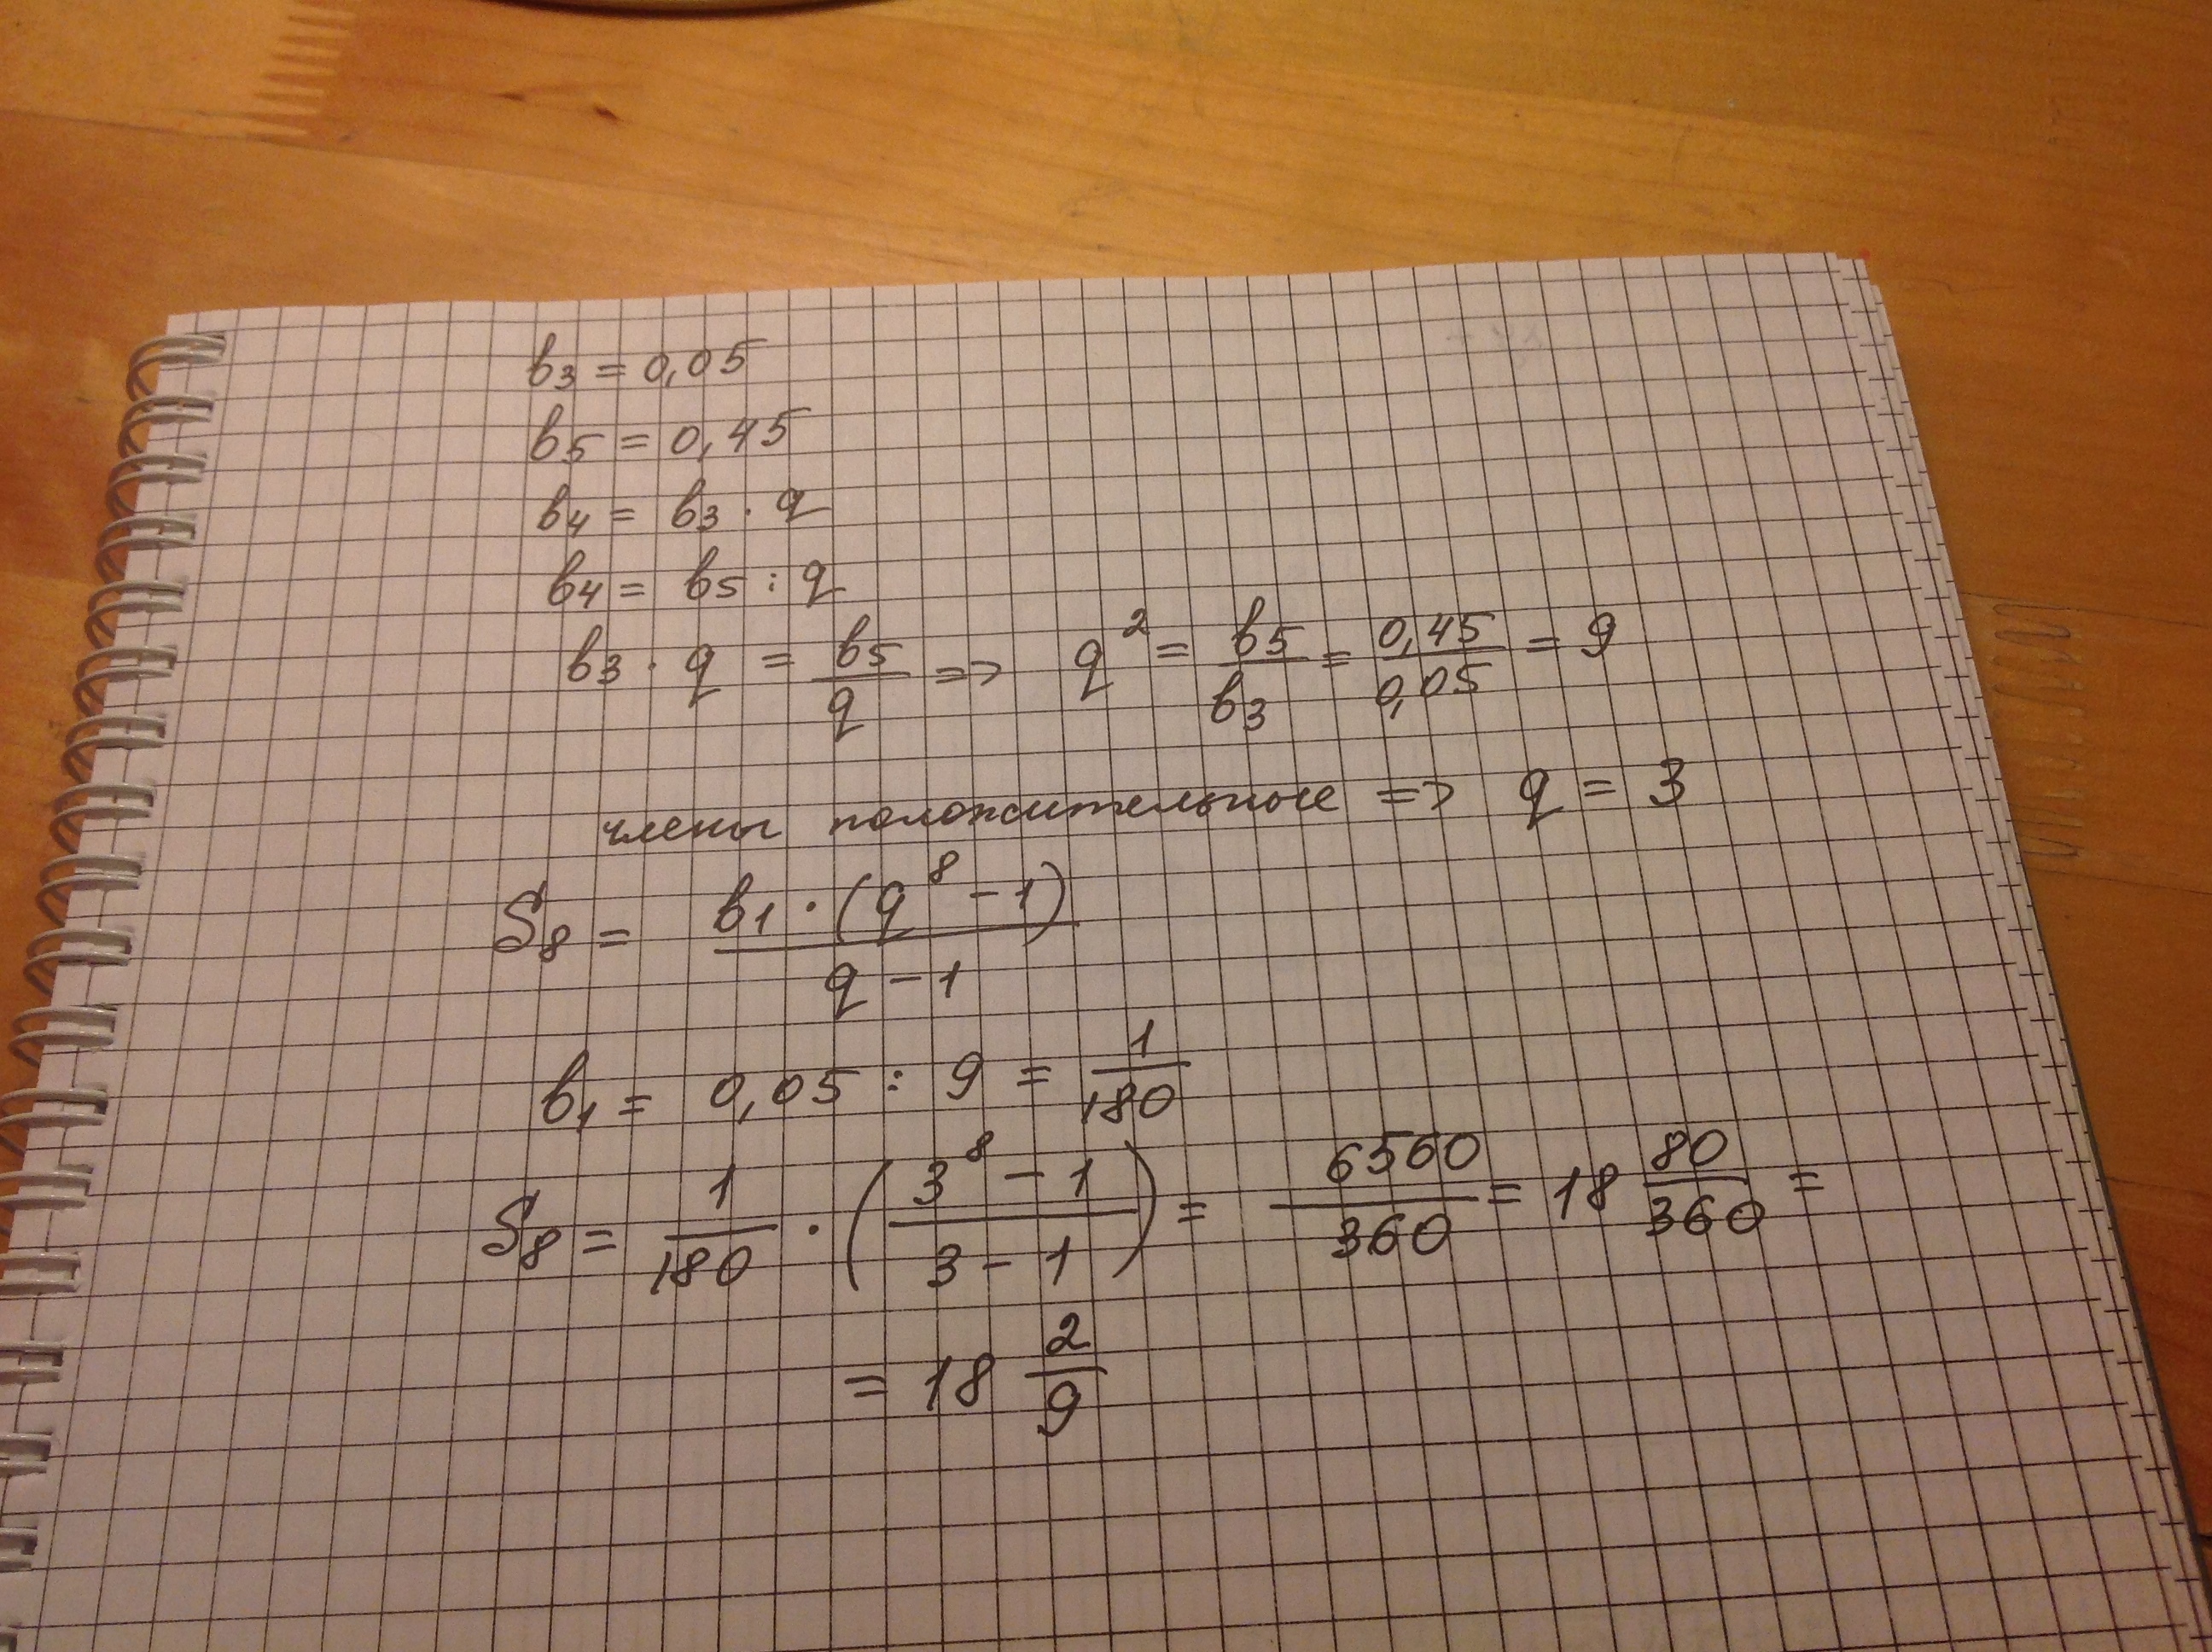 b₃ = 0,05
b₅ = 0,45
b₄ = b₃ · q
b₄ = b₅ : q
b₃ · q = b₅/q => q² = b₅/b₃ = 0,45/0,05 = 9
члены положительные => q = 3
S₈ = b₁ · (q⁸ - 1) / q - 1
b₁ = 0,05 : 9 = 1/180
S₈ = 1/180 · (3⁸ - 1 / 3 - 1) = 6560/360 = 18 80/360 =
= 18 2/9